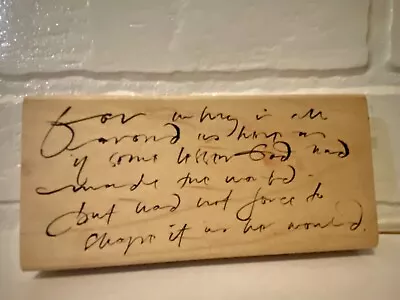 For why is all
around us here as
if some lesser God had
made the world
but had not force to
shape it as he would.